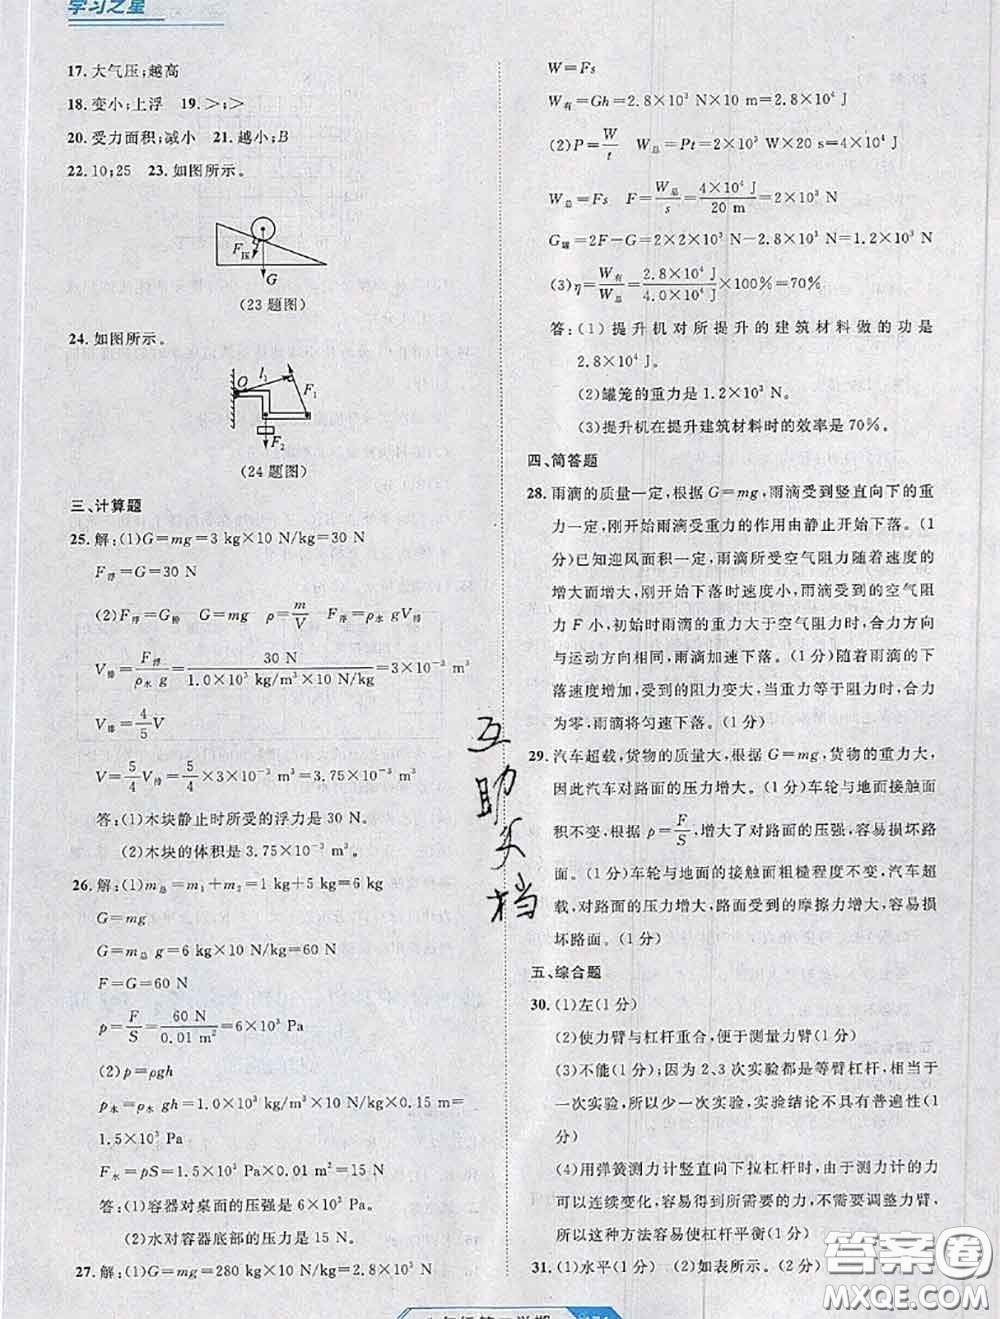 学习之星
17.大气压;越高
18.变小;上浮 19.>;>
20.受力面积;减小 21.越小;B
22.10;25 23.如图所示。
F压
G
(23题图)
24.如图所示。
O l₁ F₁
F₂
(24题图)
三、计算题
25.解:(1)G=mg=3 kg×10 N/kg=30 N
F浮=G=30 N
(2)F浮=G排 G=mg ρ=m/V F浮=ρ水 gV排
V排=F浮/ρ水 g=30 N/1.0×10³ kg/m³×10 N/kg=3×10⁻³ m³
V排=4/5V
V=5/4V排=5/4×3×10⁻³ m³=3.75×10⁻³ m³
答:(1)木块静止时所受的浮力是 30 N。
(2)木块的体积是 3.75×10⁻³ m³。
26.解:(1)m总=m₁+m₂=1 kg+5 kg=6 kg
G=mg
G=m总 g=6 kg×10 N/kg=60 N
F=G=60 N
p=F/S=60 N/0.01 m²=6×10³ Pa
(2)p=ρgh
p水=ρ水 gh=1.0×10³ kg/m³×10 N/kg×0.15 m=
1.5×10³ Pa
F水=pS=1.5×10³ Pa×0.01 m²=15 N
答:(1)容器对桌面的压强是 6×10³ Pa。
(2)水对容器底部的压力是 15 N。
27.解:(1)G=mg=280 kg×10 N/kg=2.8×10³ N
W=Fs
W有=Gh=2.8×10³ N×10 m=2.8×10⁴ J
(2)P=W/t W总=Pt=2×10³ W×20 s=4×10⁴ J
W总=Fs F=W总/s=4×10⁴ J/20 m=2×10³ N
G罐=2F−G=2×2×10³ N−2.8×10³ N=1.2×10³ N
(3)η=W有/W总=2.8×10⁴ J/4.0×10⁴ J×100%=70%
答:(1)提升机对所提升的建筑材料做的功是
2.8×10⁴ J。
(2)罐笼的重力是 1.2×10³ N。
(3)提升机在提升建筑材料时的效率是 70%。
四、简答题
28.雨滴的质量一定,根据 G=mg,雨滴受到竖直向下的重
力一定,刚开始雨滴受重力的作用由静止开始下落。(1
分)已知迎风面积一定时,雨滴所受空气阻力随着速度的
增大而增大,刚开始下落时速度小,雨滴受到的空气阻
力 F 小,初始时雨滴的重力大于空气阻力,合力方向
与运动方向相同,雨滴加速下落。(1分)随着雨滴的下
落速度增加,受到的阻力变大,当重力等于阻力时,合力
为零,雨滴将匀速下落。(1分)
29.汽车超载,货物的质量大,根据 G=mg,货物的重力大,
因此汽车对路面的压力增大。(1分)车轮与地面接触面
积不变,根据 p=F/S,增大了对路面的压强,容易损坏路
面。(1分)车轮与地面的接触面粗糙程度不变,汽车超
载,对路面的压力增大,路面受到的摩擦力增大,容易损
坏路面。(1分)
五、综合题
30.(1)左(1分)
(2)使力臂与杠杆重合,便于测量力臂(1分)
(3)不能(1分);因为 2、3 次实验都是等臂杠杆,相当于
一次实验,所以少一次实验,实验结论不具有普遍性(1
分)
(4)用弹簧测力计竖直向下拉杠杆时,由于测力计的力
可以连续变化,容易得到所需要的力,不需要调整力臂,
所以这种方法容易使杠杆平衡(1分)
31.(1)水平(1分) (2)如表所示。(2分)
互助文档
答案圈